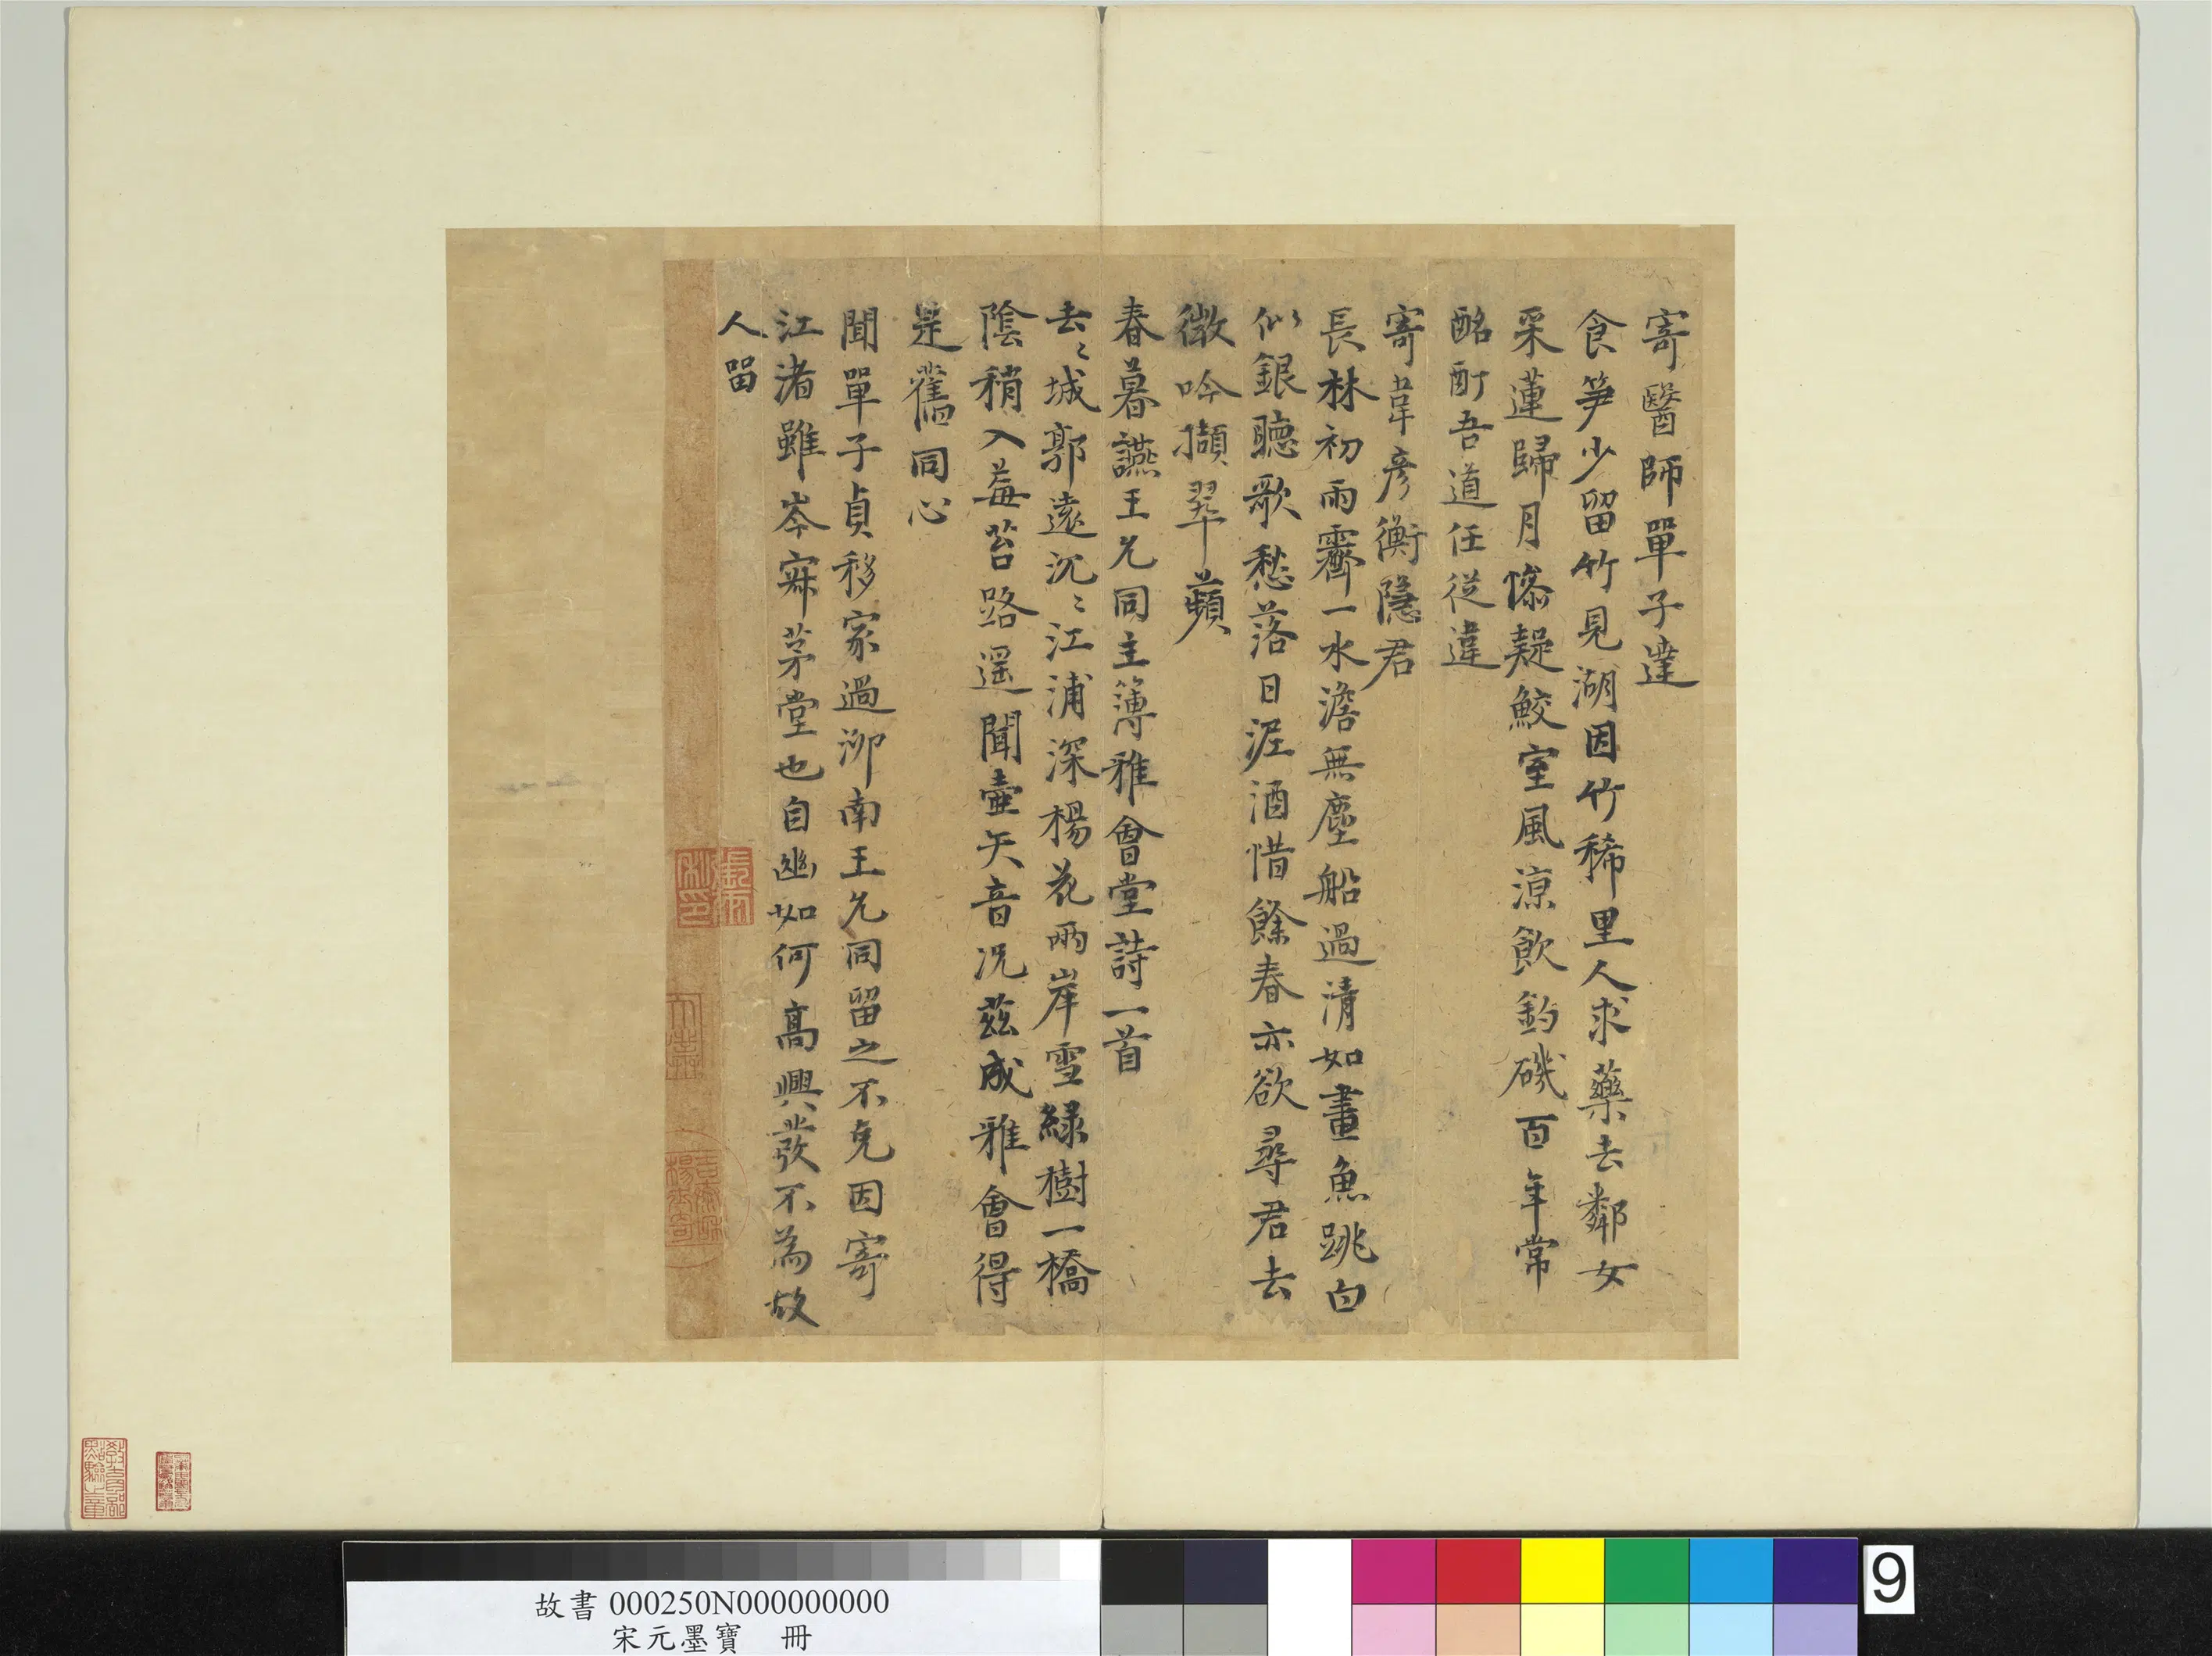 寄醫師單子達
食笋少留竹見湖因竹稀里人求藥去鄰女
采蓮歸月滲疑鮫室風涼飲釣磯百年常
酩酊吾道任從違
寄韋彥衡隱君
長林初雨霽一水澹無塵船過清如畫魚跳白
似銀聽歌愁落日泥酒惜餘春亦欲尋君去
微吟擷翠蘋
春暮讌王允同主簿雅會堂詩一首
去〻城郭遠沉〻江浦深楊花兩岸雪綠樹一橋
陰稍入莓苔路遥聞壷矢音況兹成雅會得
是舊同心
聞單子貞移家過泖南王允同留之不克因寄
江渚雖岑寂茅堂也自幽如何髙興發不為故
人留
9
故書 000250N000000000
宋元墨寶 冊